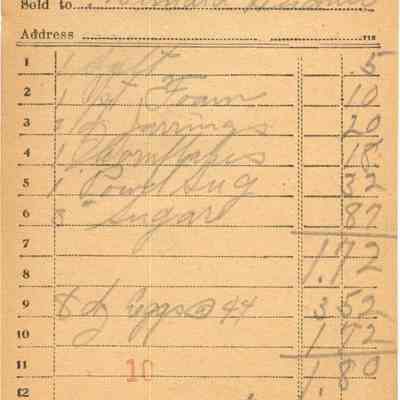 Sold to
Address
1 1 Salt .5
2 1 pt Foam 10
3 Jar rings 20
4 1 Cornflakes 18
5 1 Powd Sug 32
6 Sugar 87
7 1.72
8
9 8 dz Eggs @ 44 3 52
10 1 72
11 10 1.80
12